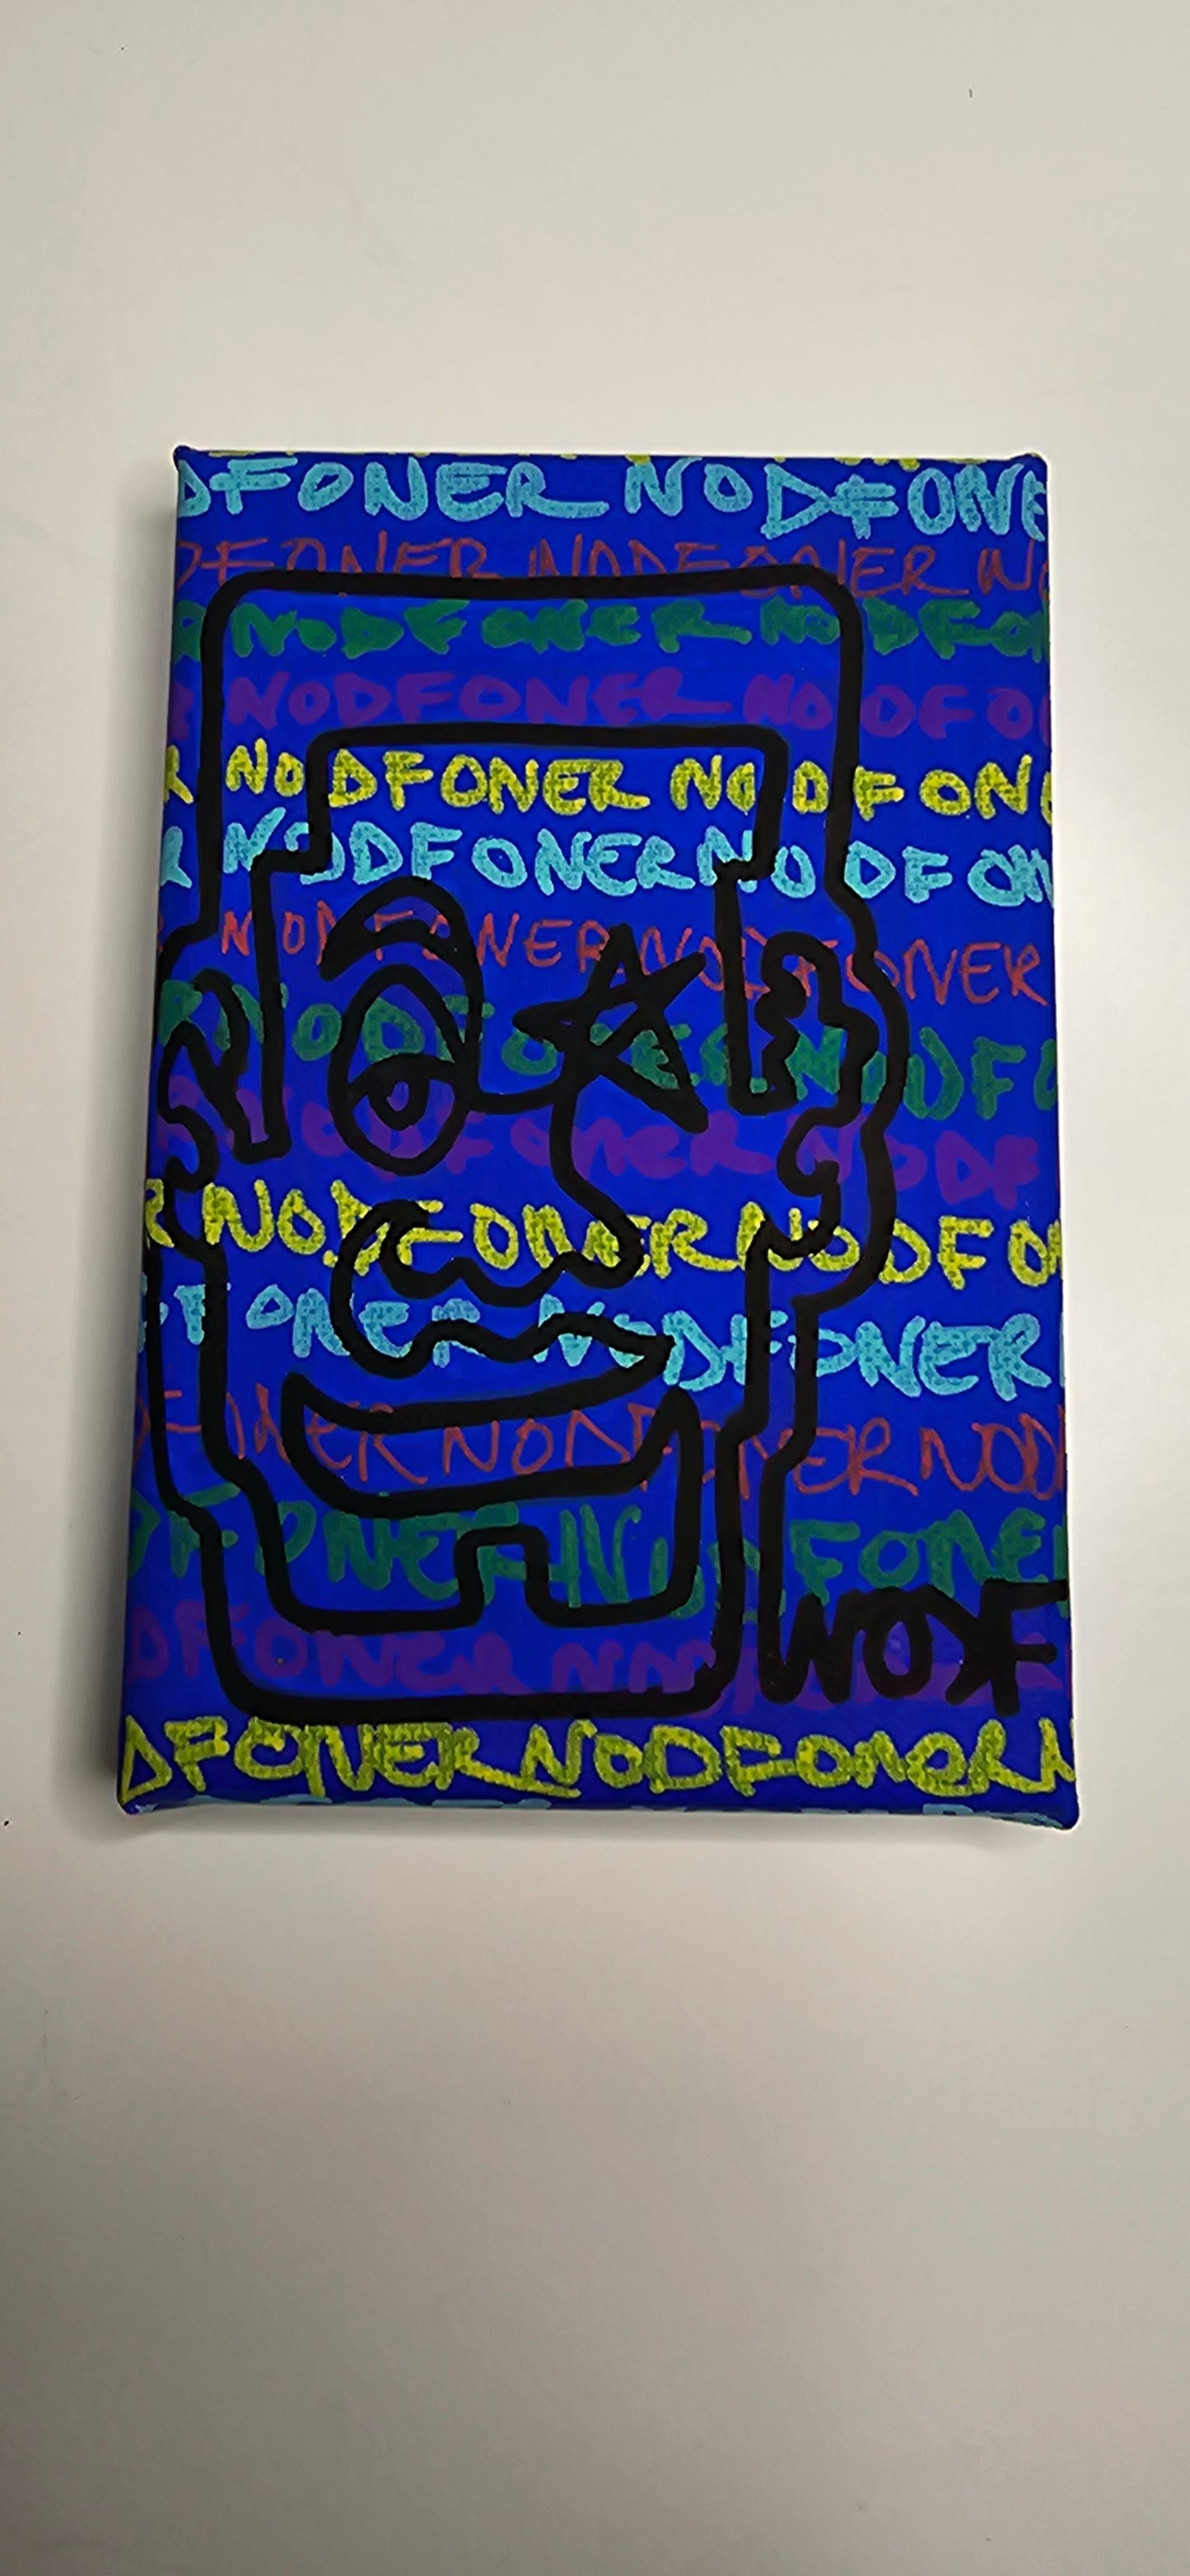 DFONER NODFONE
DFONER NODFONER NO
NODFONER NODFO
NODFONER NODFO
R NODFONER NODFONE
R NODFONERNODFON
NODFONER NODFONER
NODFONER NODFO
NODFONER NODF
R NODFONER NODFO
DFONER NODFONER
DFONER NODFONER NOD
DFONER NODFONER
DFONER
WOF
DFONERNODFONORN